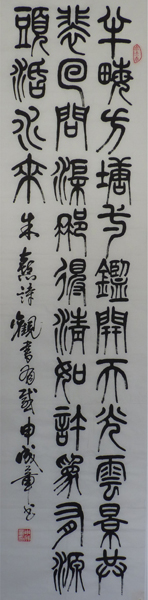 半畝方塘一鑑開天光雲景共
裴回問渠那得清如許為有源
頭活水來 朱熹詩觀書有感申城